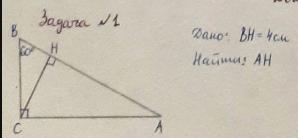 Задача №1
Дано: BH = 4см
Найти: AH
B
H
60°
C
A